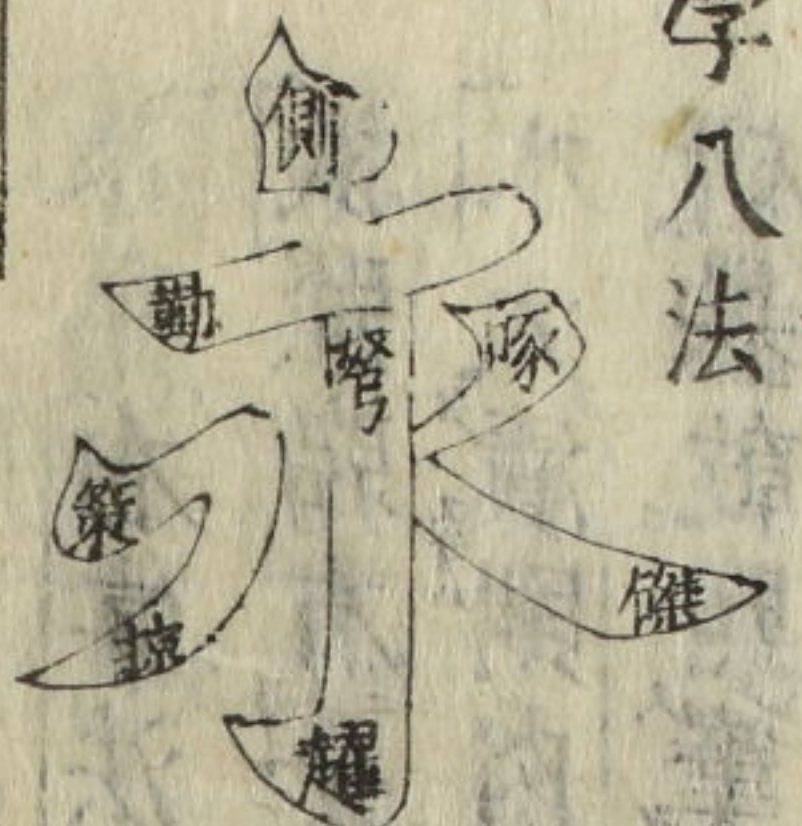 字八法
側
勒
努
啄
策
掠
磔
趯